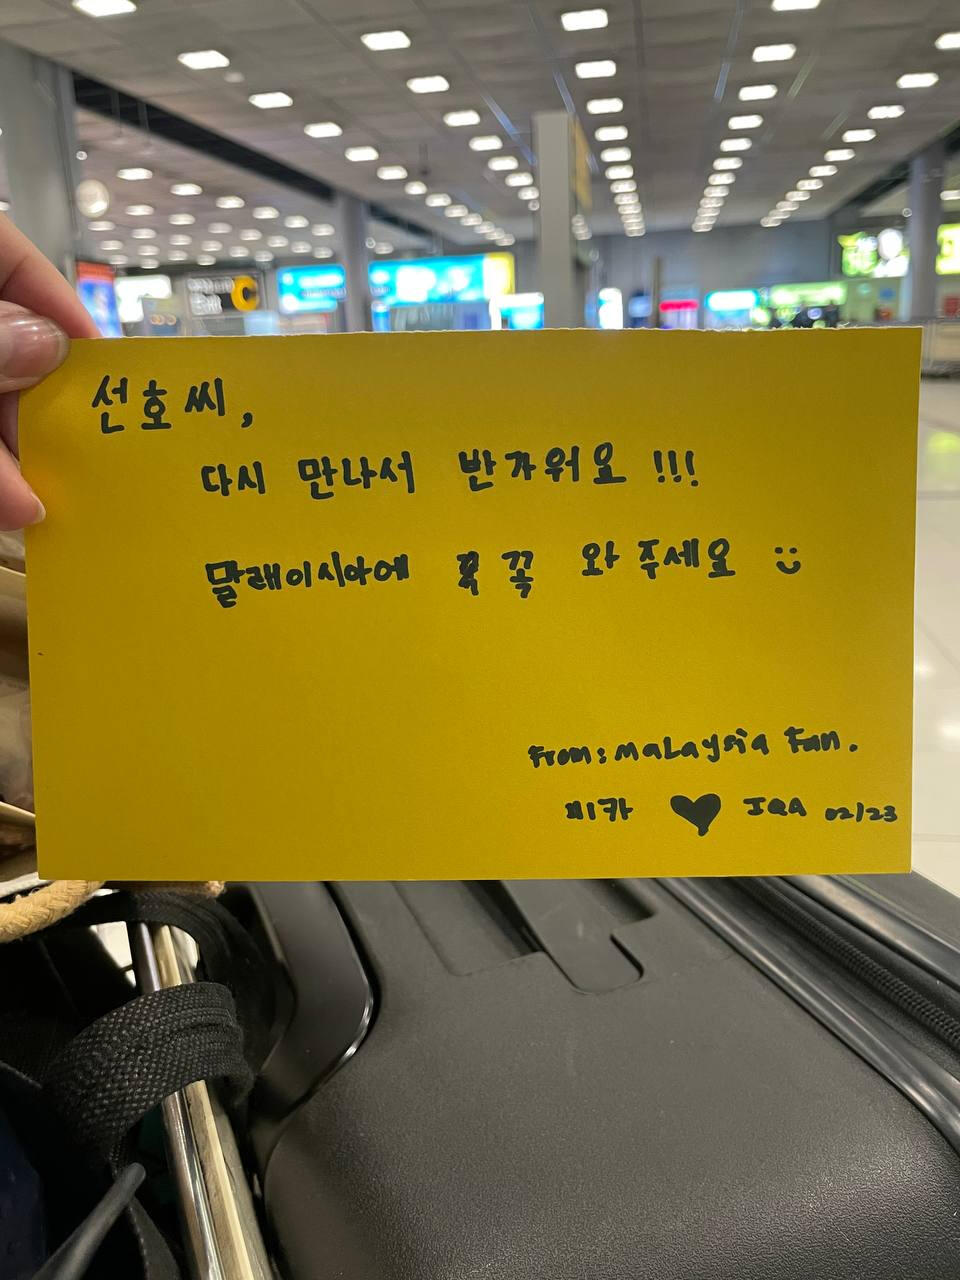 선호씨,
다시 만나서 반가워요 !!!
말래이시아에 꼭 꼭 와 주세요
From: malaysia Fan.
제이카 ♥ JQA 02/23